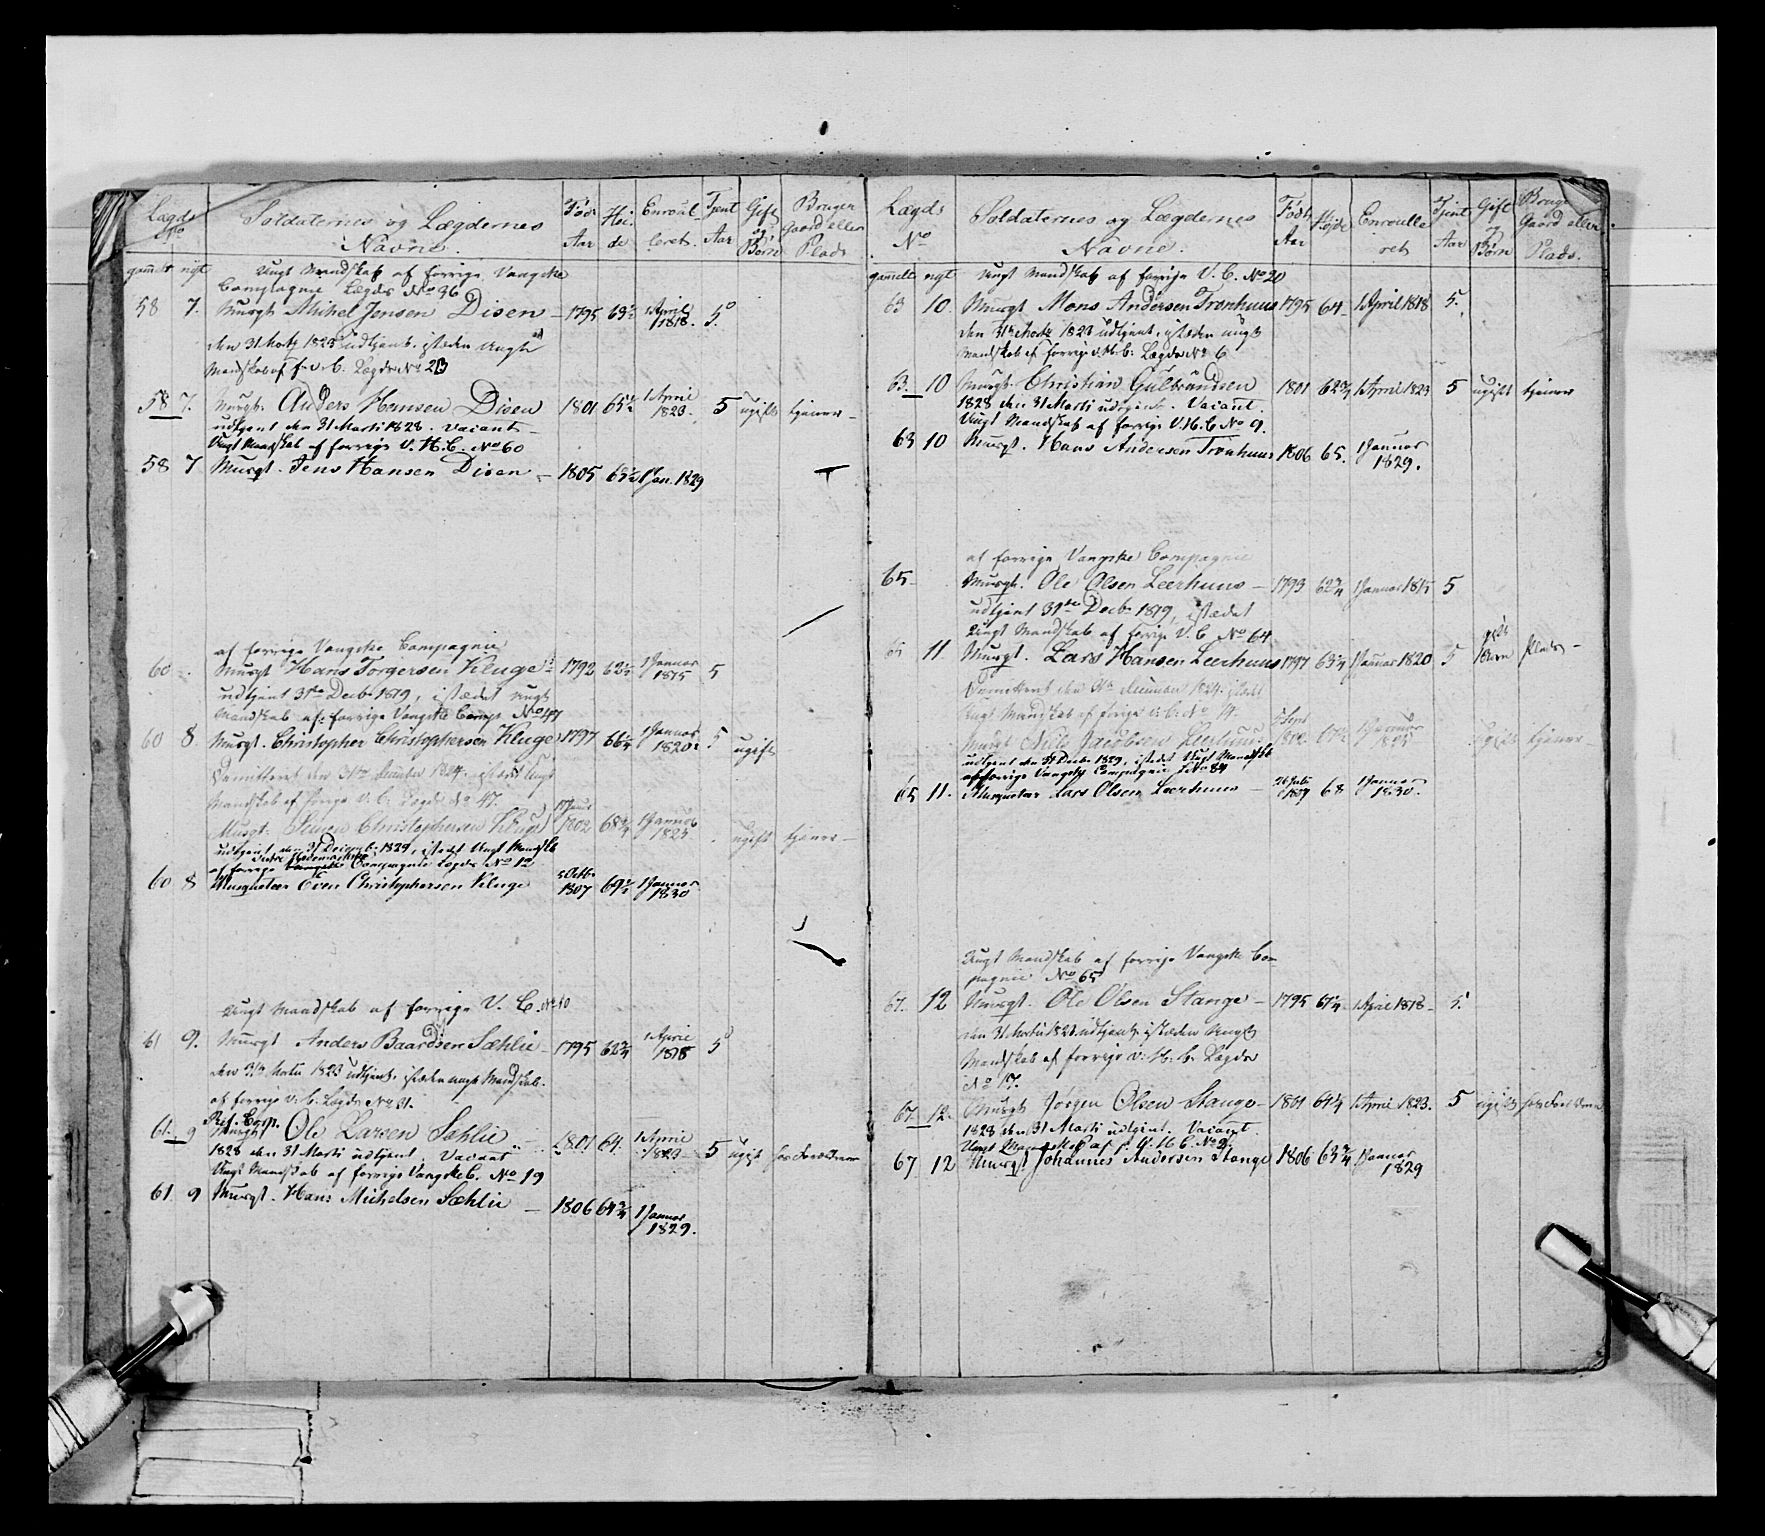 Lægds No Soldaternes og Lægdernes Navne. Føds Aar Høide Enroulleret Tjent Aar Gift og Børn Bruger Gaard eller Plads
gamelt nyt Ungt Mandskab af forrige Vangske
Compagnie Lægds No 36
58 7. Musqt. Mikel Jensen Disen 1795 63½ 1 April 1818. 5.
den 31 Marts 1823 udtjent, istæden ungt
Mandskab af f. v. C. Lægds No 23
58 7. Musqt. Anders Hansen Disen 1801 65½ 1 April 1823. 5 ugift tjener
udtjent den 31 Marti 1828. Vacant
Ungt Mandskab af forrige V. H. C. No 60
58 7 Musqt. Jens Hansen Disen 1805 65½ 1 Jan. 1829
af forrige Vangske Compagnie
60 Musqt Hans Torgersen Kluge 1792 62½ 1 Januar 1815 5
udtjent 31te Decbr 1819, istædet ungt
Mandskab af forrige Vangske Comp. No 47
60 8. Musqt. Christopher Christophersen Kluge 1797 66¼ 1 Januar 1820 5 ugift
Demitteret den 31te December 1824. istædt Ungt
Mandskab af forrige V. C. Lægds No 47.
Musqt: Simen Christophersen Kluge 1802 68¾ 1 Januar 1825 ugift tjener
udtjent den 31 Decemb. 1829, istedet Ungt Mandskb
af forrige Compagnie Lægds No 12
60 8 Musqueteer Even Christophersen Kluge 5 Octbr 1807 69½ 1 Januar 1830
Ungt Mandskab af forrige V. C. No 10
61 9. Musqt Anders Baardsen Sæhlie 1795 62¾ 1 April 1818 5
den 31te Martii 1823 udtjent, istæden ungt Mandskab
af forrige v. C. Lægds No 31.
Res. Corp.
61. 9 Musqt Ole Larsen Sæhlie 1801 64. 1 April 1823 5 ugift hos Forældrene
1828 den 31 Marti udtjent. Vacant
Ungt Mandskab af forrige Vangske C. No 19
61 9 Musqt. Hans Mickelsen Sæhlie 1806 64¾ 1 Januar 1829.
Lægds No Soldaternes og Lægdernes Navne. Født Aar Høide Enroulleret Tjent Aar Gift og Børn Bruge Gaard eller Plads.
gamelt nyt Ungt Mandskab af forrige V. C. No 20
63 10. Musqt Mons Andersen Tronhuus 1795 64 1 April 1818 5.
den 31te Marts 1823 udtjent, istæden ungt
Mandskab af forrige v. H. C. Lægds No 6
63. 10 Musqt. Christian Gulbrandsen 1801 62¾ 1 April 1823 5 ugift tjener
1828 den 31 Marti udtjent. Vacant.
Ungt Mandskab af forrige V. H. C. No 9.
63 10 Musqt. Hans Andersen Tronhuus 1806 65. 1 Januar 1829.
af forrige Vangske Compagnie
65 Musqt. Ole Olsen Leerhuus 1793 62¾ 1 Januar 5
udtjent 31te Decbr 1819, istædet
Ungt Mandskab af forrige V. C. No 64
65 11 Musqt. Lars Hansen Leerhuus 1797 63¼ 1 Januar 1820 5 gift Plads
Demitteret den 31te December 1824. istædt
ungt Mandskab af forrige v. C. No 14.
Musqt Niels Jacobsen Leerhuus 1 Januar 1825 ugift tjener
udtjent den 31 Decbr 1829, istedet Ungt Mandskb
af forrige Vangske Compagnie L. No 84
65 11. Musqueteer Lars Olsen Leerhuus 26 Juli 1807 68 1 Januar 1830.
Ungt Mandskab af forrige Vangske Compagnie No 65
67. 12 Musqt. Ole Olsen Stange 1795 61¼ 1 April 1818 5.
den 31 Martii 1823 udtjent, istæden Ungt
Mandskab af forrige V. H. C. Lægds
No 17.
67. 12. Musqt Jørgen Olsen Stange 1801 64¼ 1 April 1823. 5 ugift hos Forældrene
1828 den 31 Marti udtjent. Vacant.
Ungt Mandskab af f. V. H. C. No 2.
67 12 Musqt. Johannes Andersen Stange 1806 63¾ 1 Januar 1829